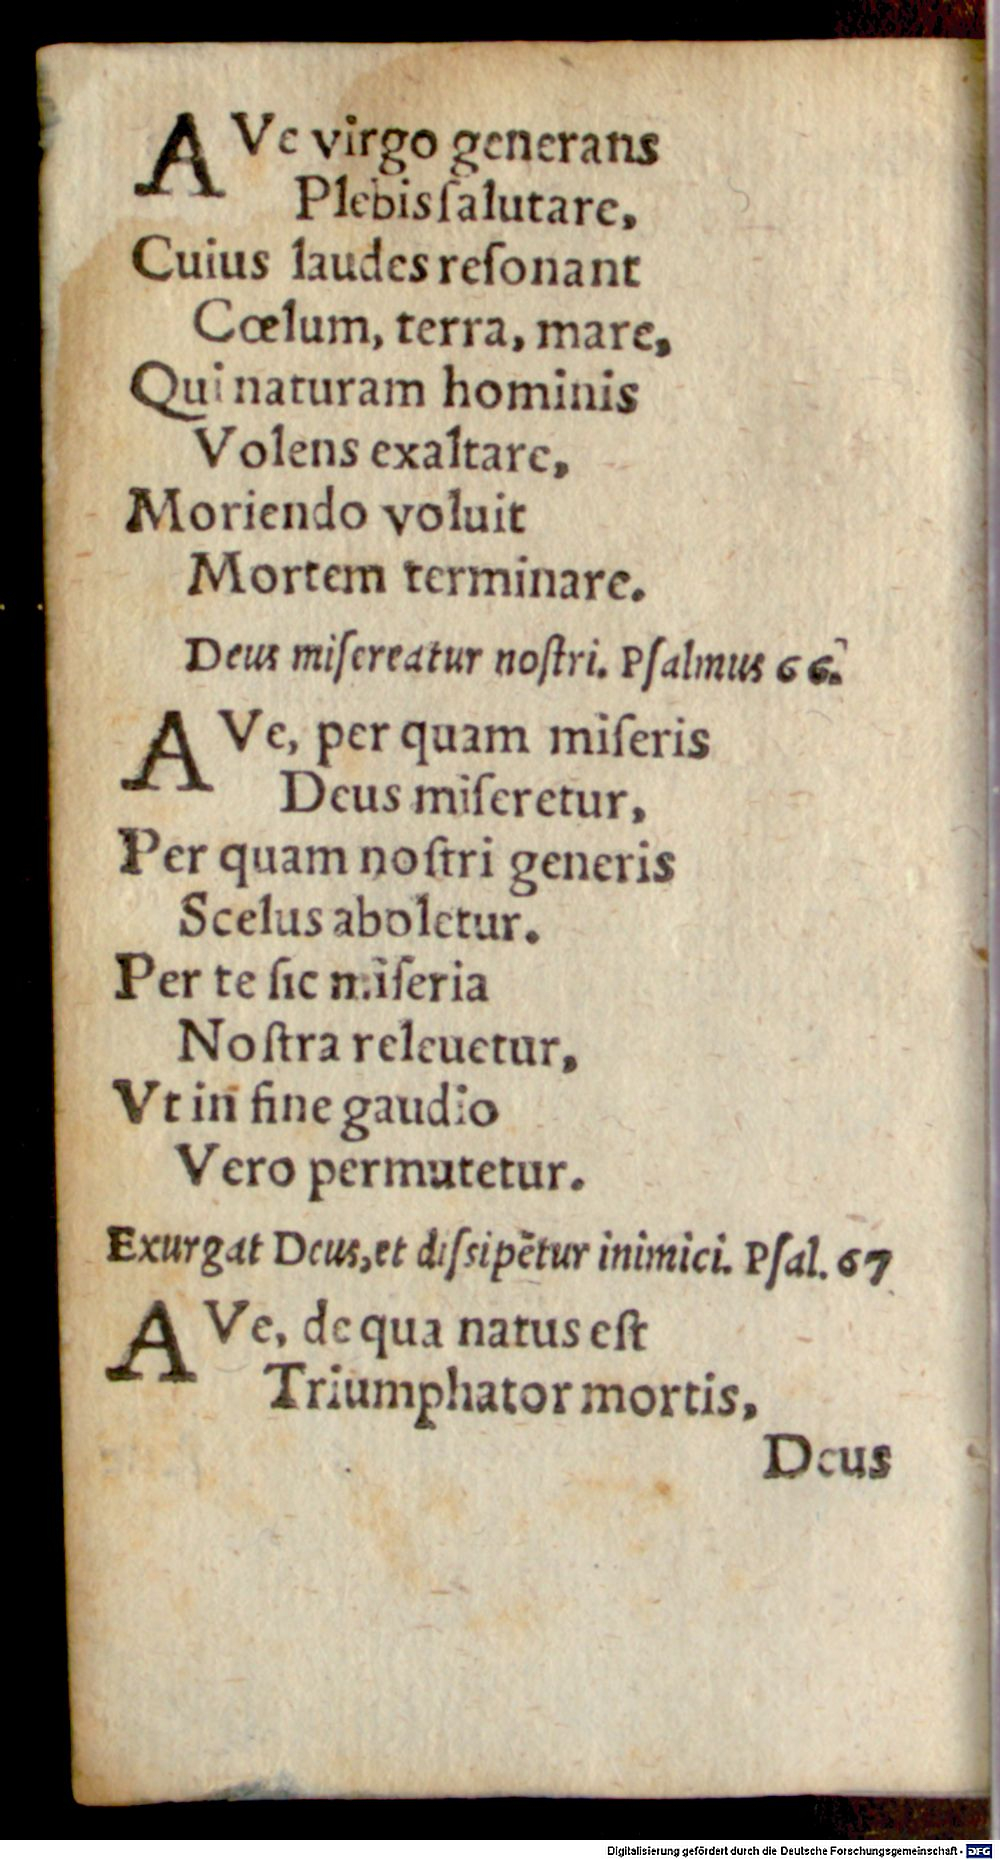 AVe virgo generans
Plebis ſalutare,
Cuius laudes reſonant
Cœlum, terra, mare,
Qui naturam hominis
Volens exaltare,
Moriendo voluit
Mortem terminare.
Deus miſereatur noſtri. Pſalmus 66.
AVe, per quam miſeris
Deus miſeretur,
Per quam noſtri generis
Scelus aboletur.
Per te ſic miſeria
Noſtra releuetur,
Vt in fine gaudio
Vero permutetur.
Exurgat Deus, et diſsipētur inimici. Pſal. 67
AVe, de qua natus eſt
Triumphator mortis,
Deus
Digitalisierung gefördert durch die Deutsche Forschungsgemeinschaft - DFG